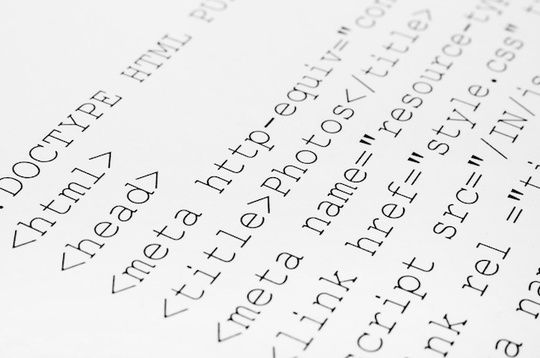 DOCTYPE HTML
<html>
<head>
<meta http-equiv="con
<title>Photos</title>
<meta name="resource-typ
<link href="style.css"
script src="/IN/is
nk rel ="ti
a na